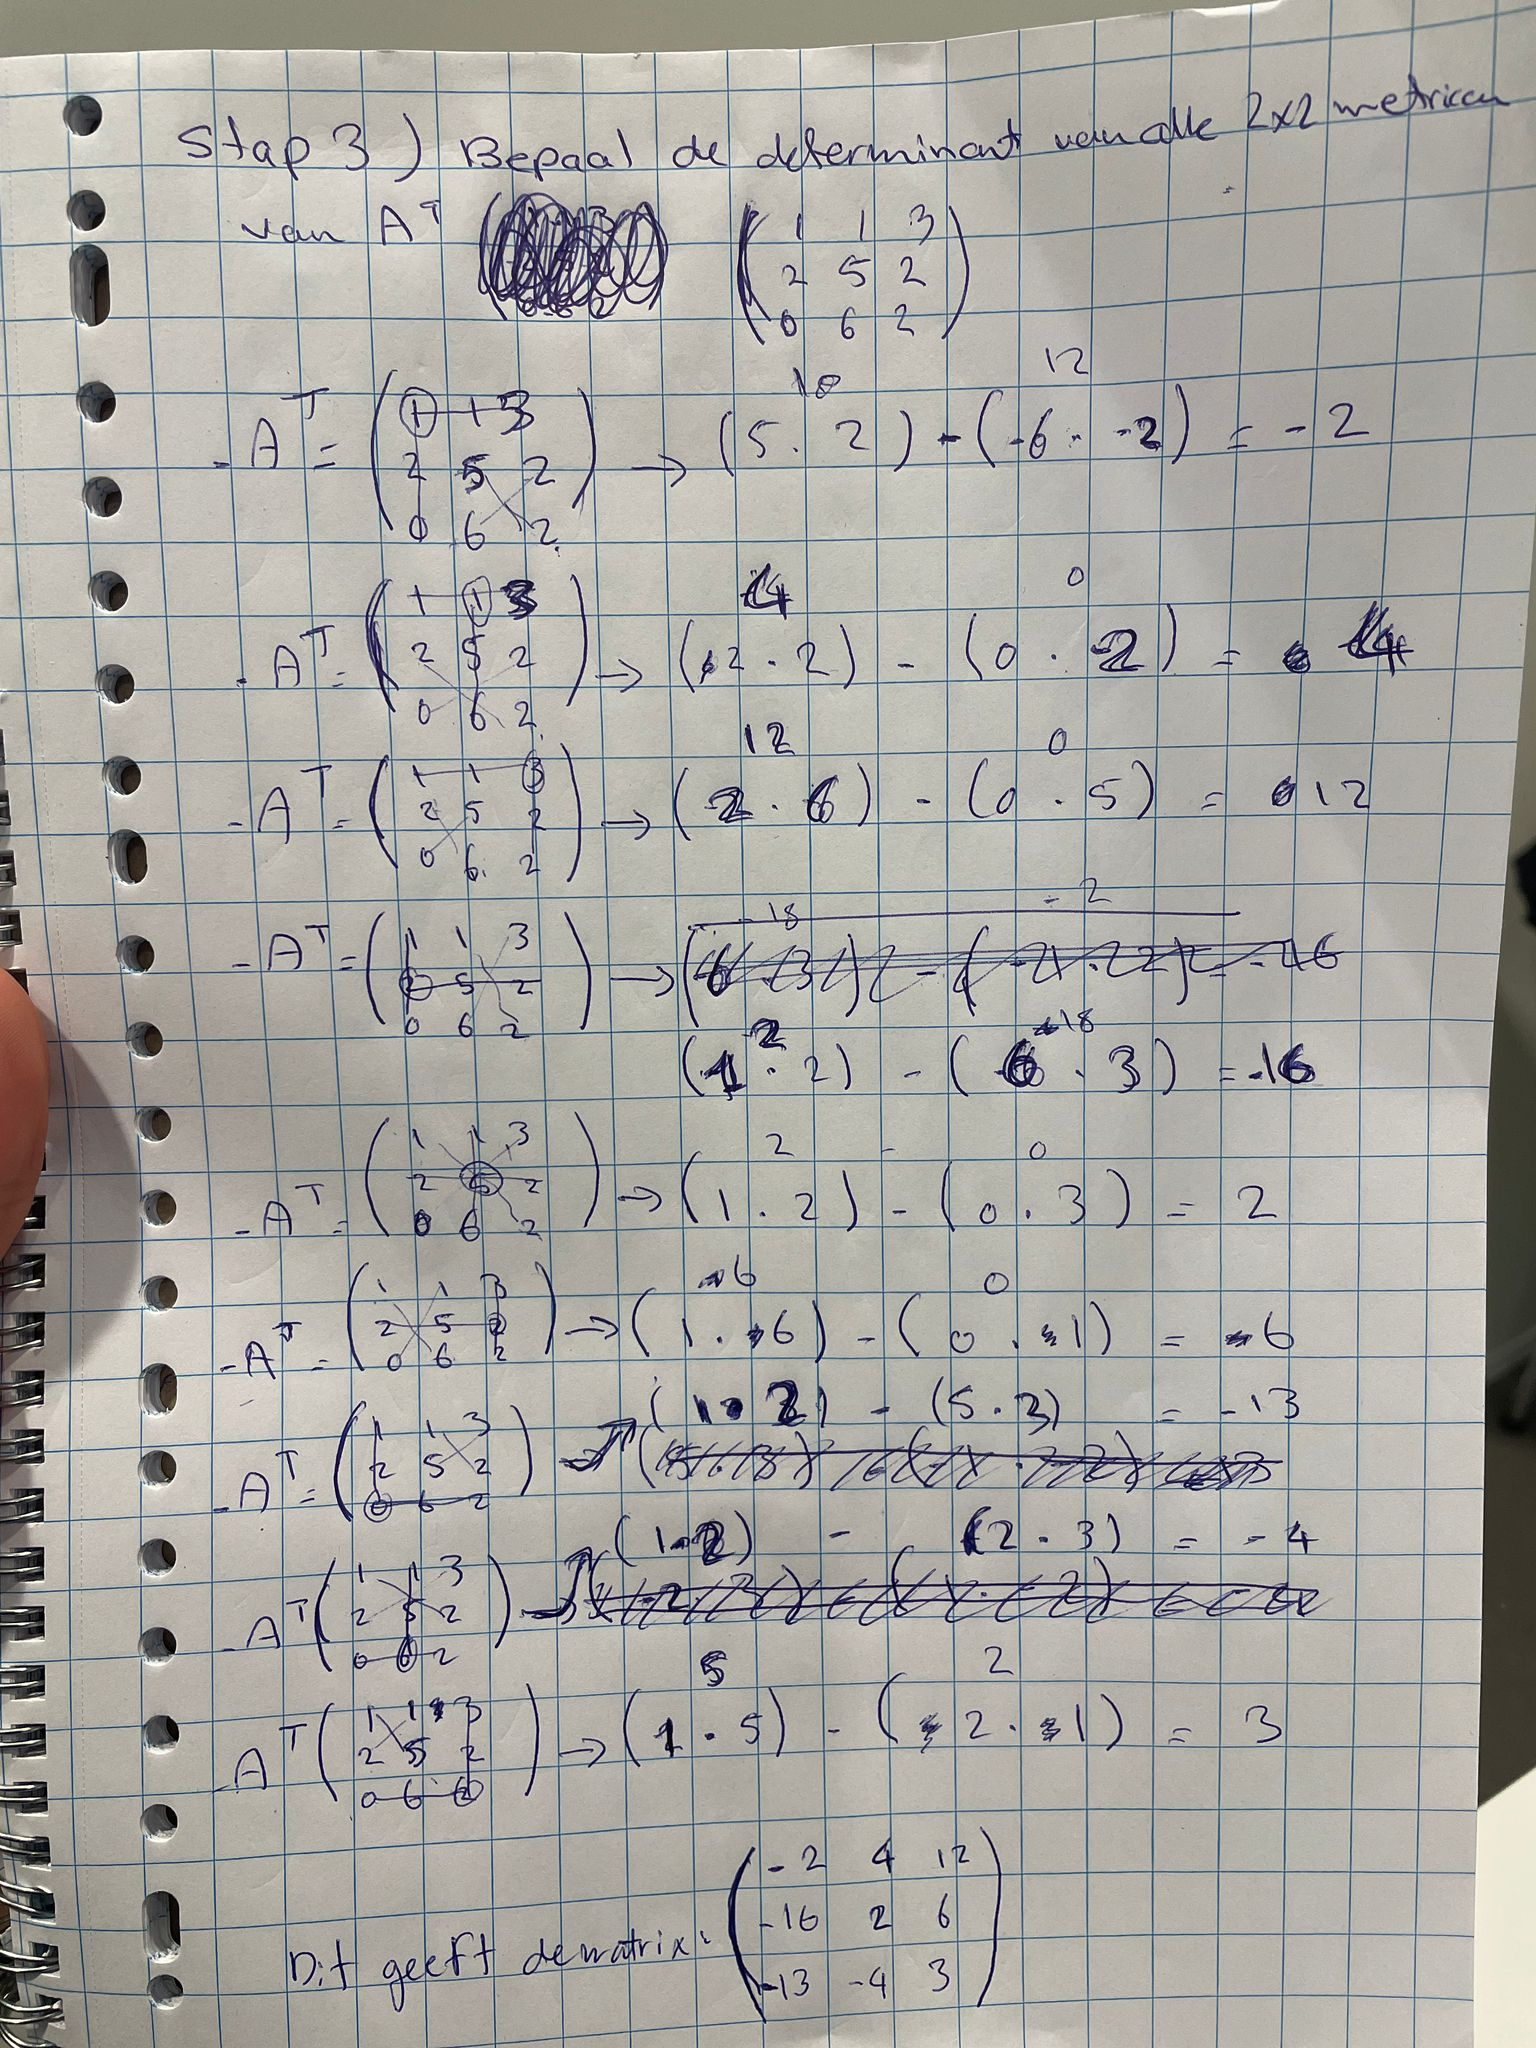 Stap 3) Bepaal de determinant van alle 2x2 metricen
van A^T
( 1 1 3
2 5 2
0 6 2 )
- A^T = ( 1 1 3
2 5 2
0 6 2 )
10 12
→ (5 . 2) - (-6 . -2) = -2
- A^T = ( 1 1 3
2 5 2
0 6 2 )
4 0
→ (2 . 2) - (0 . 2) = 4
- A^T = ( 1 1 3
2 5 2
0 6 2 )
12 0
→ (2 . 6) - (0 . 5) = 12
- A^T = ( 1 1 3
2 5 2
0 6 2 )
-18 -2
→
2 18
(1 . 2) - (6 . 3) = -16
- A^T = ( 1 1 3
2 5 2
0 6 2 )
2 - 0
→ (1 . 2) - (0 . 3) = 2
- A^T = ( 1 1 3
2 5 2
0 6 2 )
6 0
→ (1 . 6) - (0 . 1) = 6
- A^T = ( 1 1 3
2 5 2
0 6 2 )
→ (1 . 2) - (5 . 3) = -13
- A^T ( 1 1 3
2 5 2
0 6 2 )
→ (1 . 2) - (2 . 3) = -4
- A^T ( 1 1 3
2 5 2
0 6 2 )
5 2
→ (1 . 5) - (2 . 1) = 3
Dit geeft de matrix:
( -2 4 12
-16 2 6
-13 -4 3 )